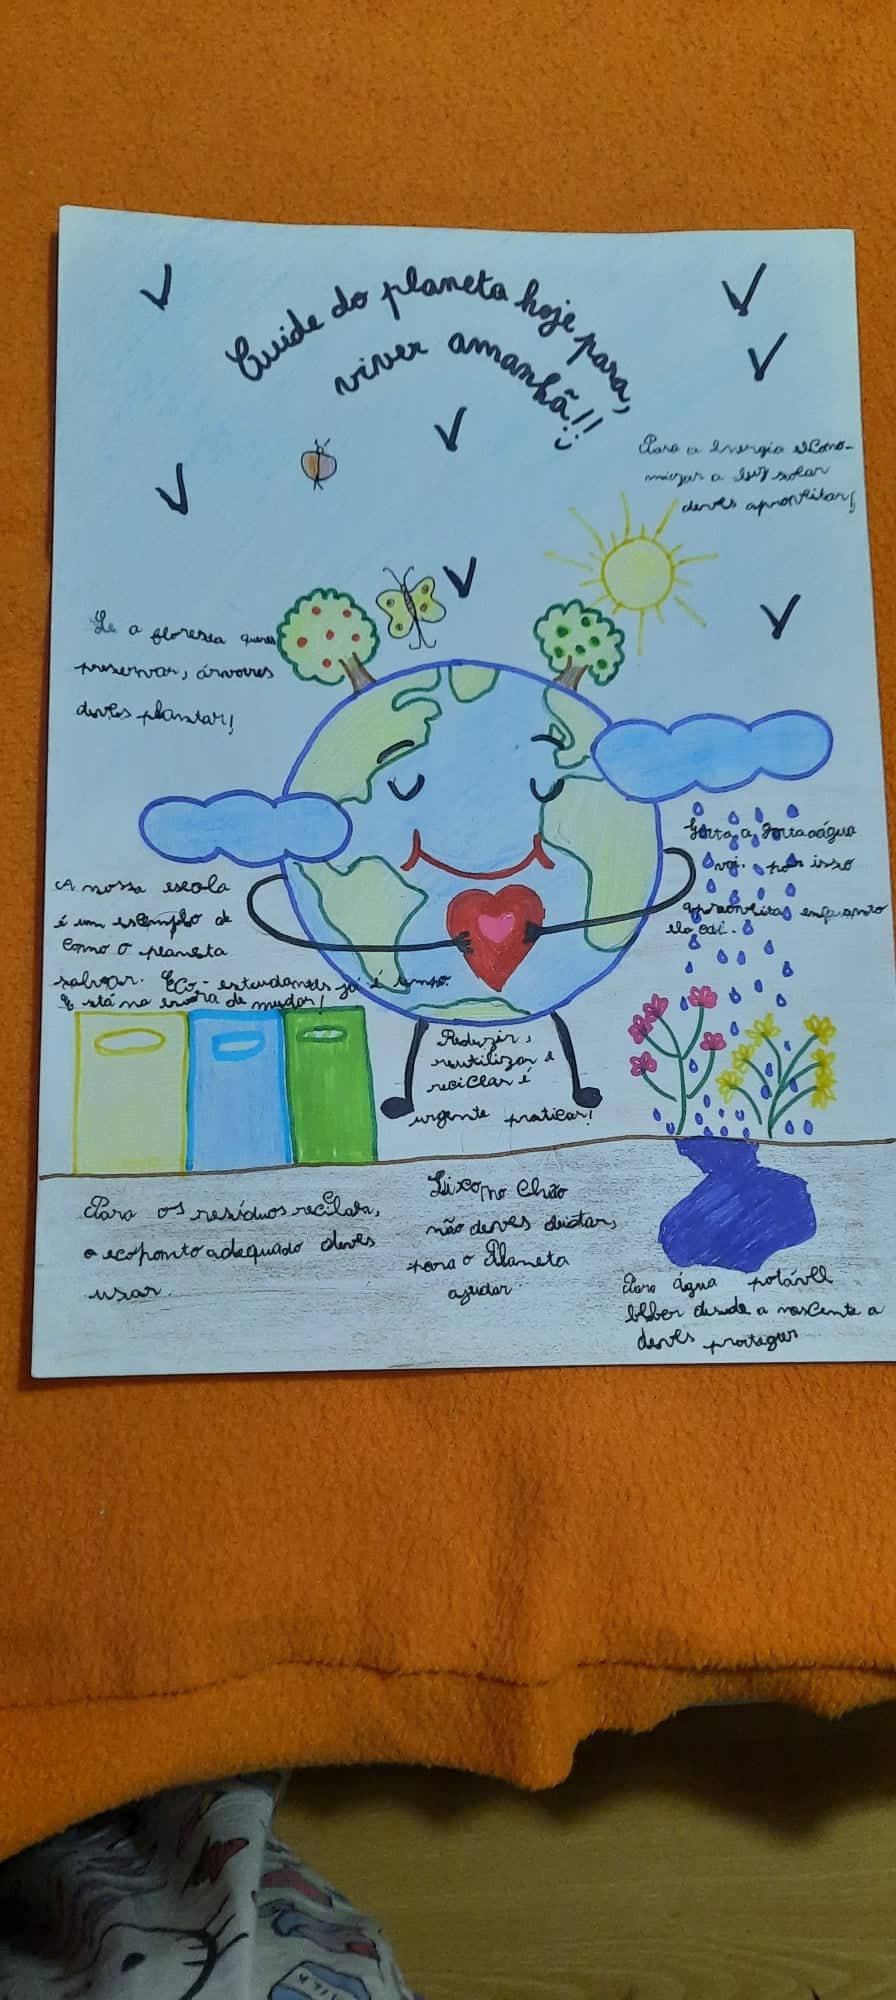 Cuide do planeta hoje para,
viver amanhã!!
Para a Energia econo-
mizar a luz solar
deves aproveitar!
Se a floresta queres
preservar, árvores
deves plantar!
Gota a gota a água
vai. por isso
aproveita enquanto
ela cai.
A nossa escola
é um exemplo de
como o planeta
salvar. Eco-estudantes já é tempo.
E está na hora de mudar!
Reduzir,
reutilizar e
reciclar é
urgente praticar!
Para os resíduos
o ecoponto adequado deves
usar.
Lixo no Chão
não deves deitar,
para o Planeta
ajudar.
Para água potável
beber desde a nascente a
deves proteger